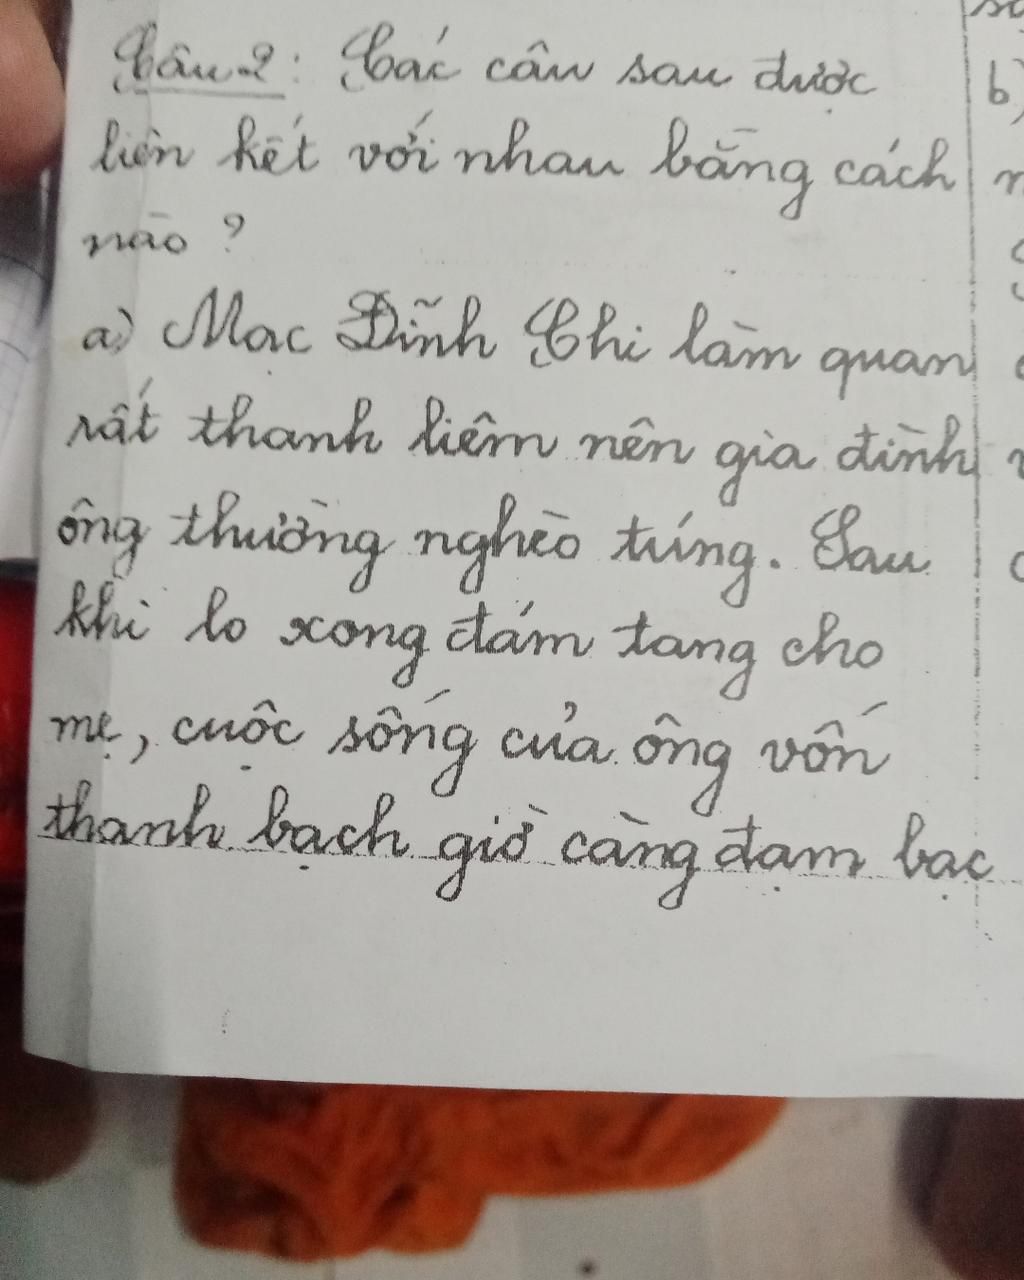 Câu 2: Các câu sau được
liên kết với nhau bằng cách
nào ?
a) Mạc Đĩnh Chi làm quan
rất thanh liêm nên gia đình
ông thường nghèo túng. Sau
khi lo xong đám tang cho
mẹ, cuộc sống của ông vốn
thanh bạch giờ càng đạm bạc
b)